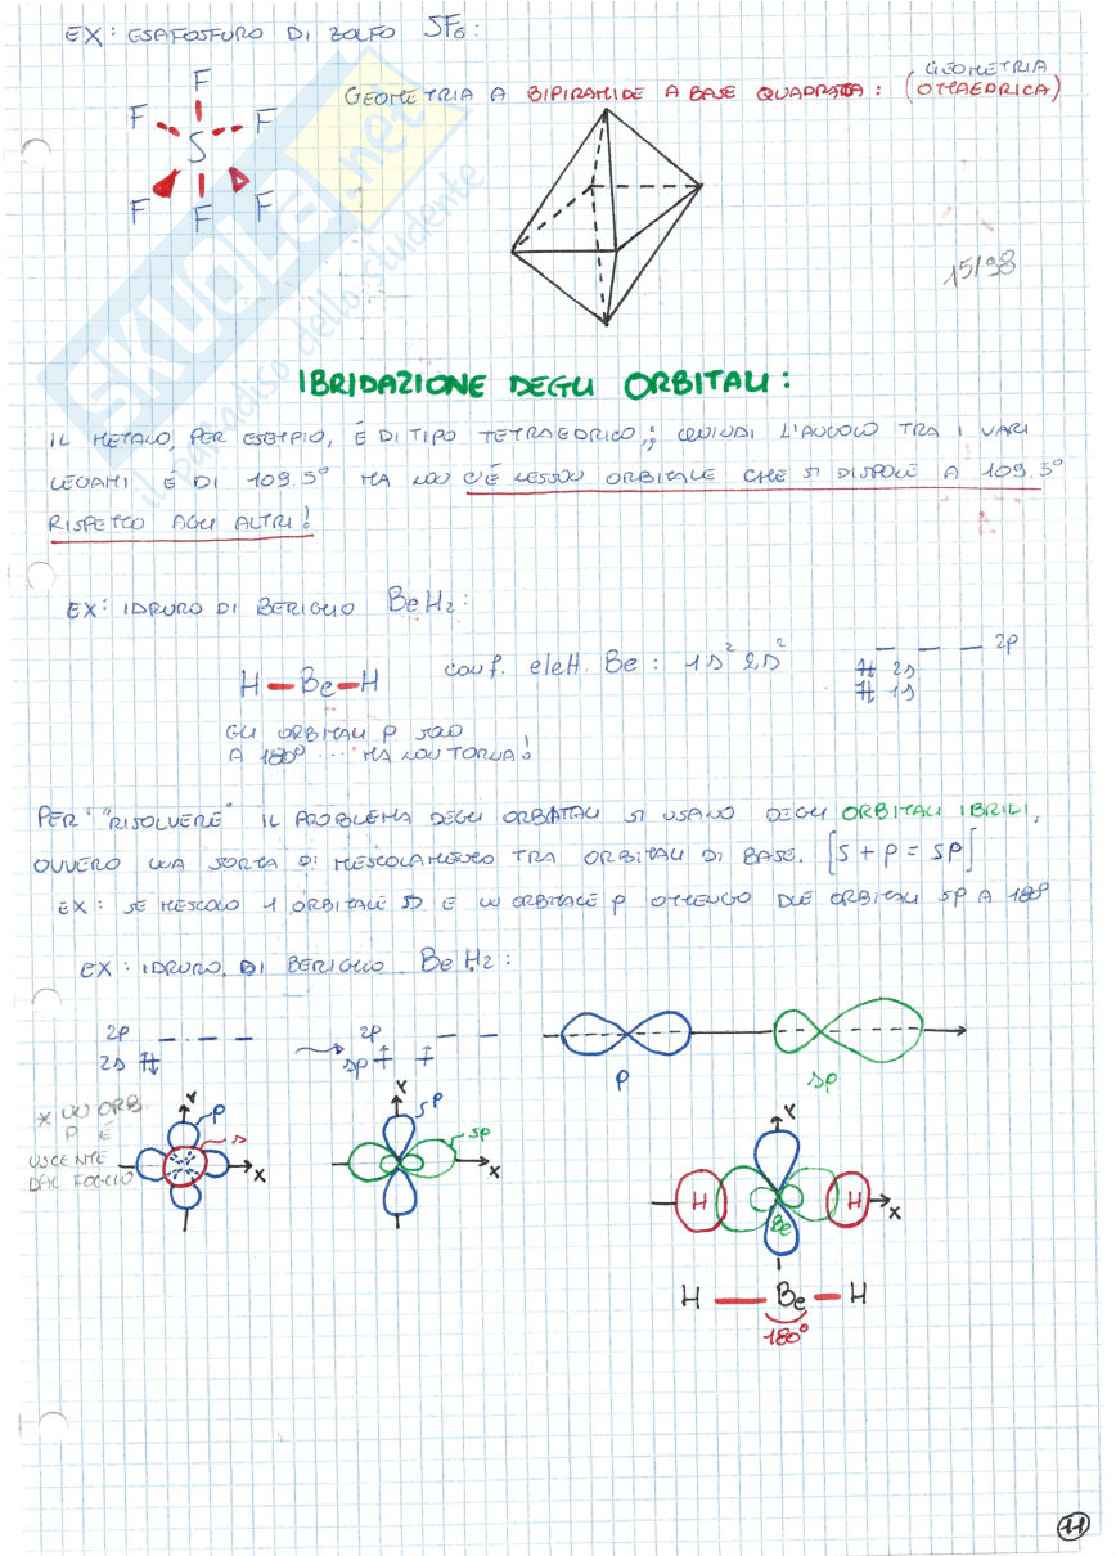 EX: ESAFOSFURO DI ZOLFO SF6:
GEOMETRIA A BIPIRAMIDE A BASE QUADRATA: (GEOMETRIA OTTAEDRICA)
F
F F
S
F F F
15/98
SKUOLA.net
il paradiso dello studente
IBRIDAZIONE DEGLI ORBITALI:
IL METANO, PER ESEMPIO, É DI TIPO TETRAEDRICO; QUINDI L'ANGOLO TRA I VARI
LEGAMI É DI 109.5° MA NON C'É NESSUN ORBITALE CHE SI DISPONE A 109.5°
RISPETTO AGLI ALTRI!
EX: IDRURO DI BERILLIO BeH2:
H - Be - H
conf. elett. Be: 1s² 2s²
2p
2s
1s
GLI ORBITALI P SONO
A 180° ... MA NON TORNA!
PER "RISOLVERE" IL PROBLEMA DEGLI ORBITALI SI USANO DEGLI ORBITALI IBRIDI,
OVVERO UNA SORTA DI MESCOLAMENTO TRA ORBITALI DI BASE. [S + P = SP]
EX: SE MESCOLO 1 ORBITALE S E UN ORBITALE P OTTENGO DUE ORBITALI SP A 180°
EX: IDRURO DI BERILLIO BeH2:
2p
2s
2p
sp
P
sp
* UN ORB
P É
USCENTE
DAL FOGLIO
Y
P
s
X
Y
sP
sp
X
Y
H
H
Be
X
H - Be - H
180°
11